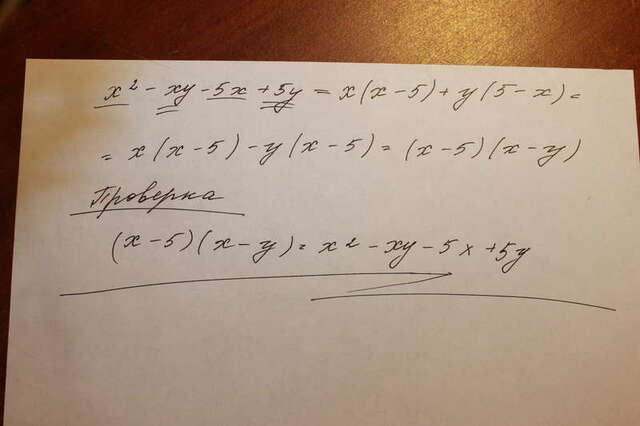 x² - xy - 5x + 5y = x(x-5) + y(5-x) =
= x(x-5) - y(x-5) = (x-5)(x-y)
Проверка
(x-5)(x-y) = x² - xy - 5x + 5y